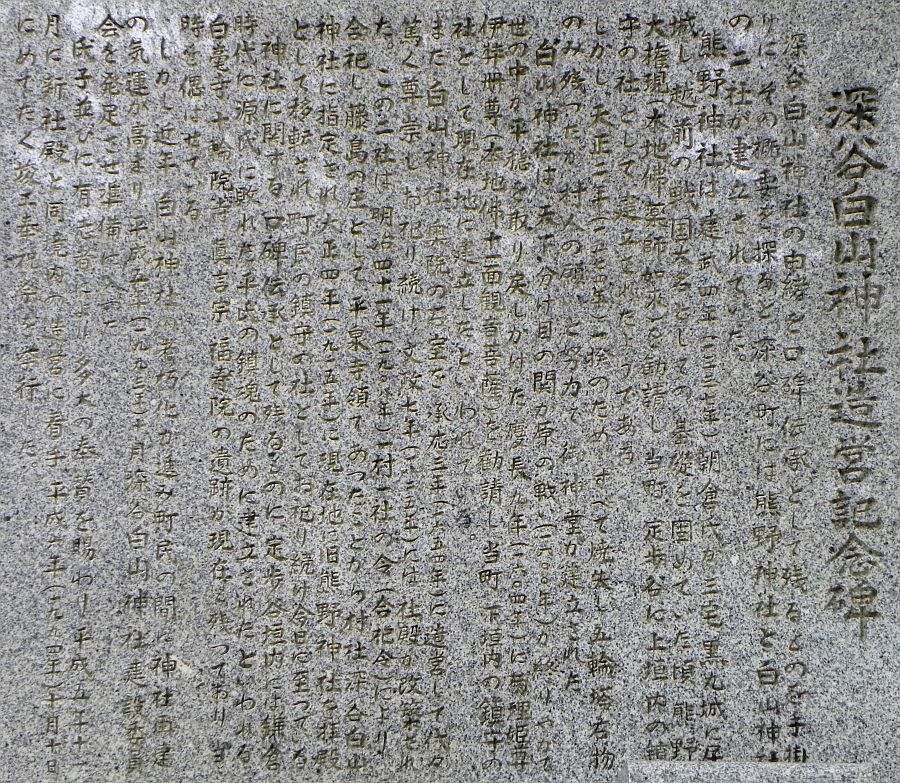 深谷白山神社造営記念碑
深谷白山神社の由緒を口碑伝承として残るものを手掛
りにその
を探ると深谷町には熊野神社と白山神社
の二社が建立されていた。
熊野神社は建武四年(一三三七年)朝倉氏が三宅黒丸城に居
城し越前の戦国大名としての基盤を固めていた頃熊野
大権現(本地佛薬師如来)を勧請し当町定歩谷に上垣内の鎮
守の社として建立されたようである
しかし大正二年(一
年)
のため
すべて焼失し五輪塔石物
のみ残ったが村人の願いと努力で
神堂が建立された
白山神社は天下分け目の関ヶ原の戦(一六〇〇年)が終りやがて
世の中が平穏を取り戻しかけた慶長九年(一六〇四年)に菊理姫尊
伊弉冊尊(本地佛十一面観音菩薩)を勧請し当町下垣内の鎮守の
社として現在地に建立したといわれている
また白山神社奥院の石室を承応三年(一六五四年)に造営して代々
篤く尊崇しお祀り続け文政七年(一八二四年)には社殿が改築され
た。この二社は明治四十一年(一九〇八年)一村一社の令(合祀令)により
合祀し藤島の庄として平泉寺領であったことから村社深谷白山
神社に指定され大正四年(一九一五年)に現在地に旧熊野神社を拝殿
として移転され町民の鎮守の社としてお祀り続け今日に至っている
神社に関する口碑伝承として残るものに定歩谷垣内には鎌倉
時代に源氏に敗れた平氏の鎮魂のために建立されたといわれる
白竜寺十輪院
真言宗福寺院の遺跡が現在も残っており当
時を偲ばせている
しかし近年白山神社の老朽化が進み町民の間に神社再建
の気運が高まり平成五年(一九九三年)一月深谷白山神社建設委員
会を発足させ準備に入った
氏子並びに有志者により多大の奉賛を賜わり平成五年十一
月に新社殿と同境内の造営に着手し平成六年(一九九四年)十月十日
にめでたく竣工奉祝祭を挙行した。